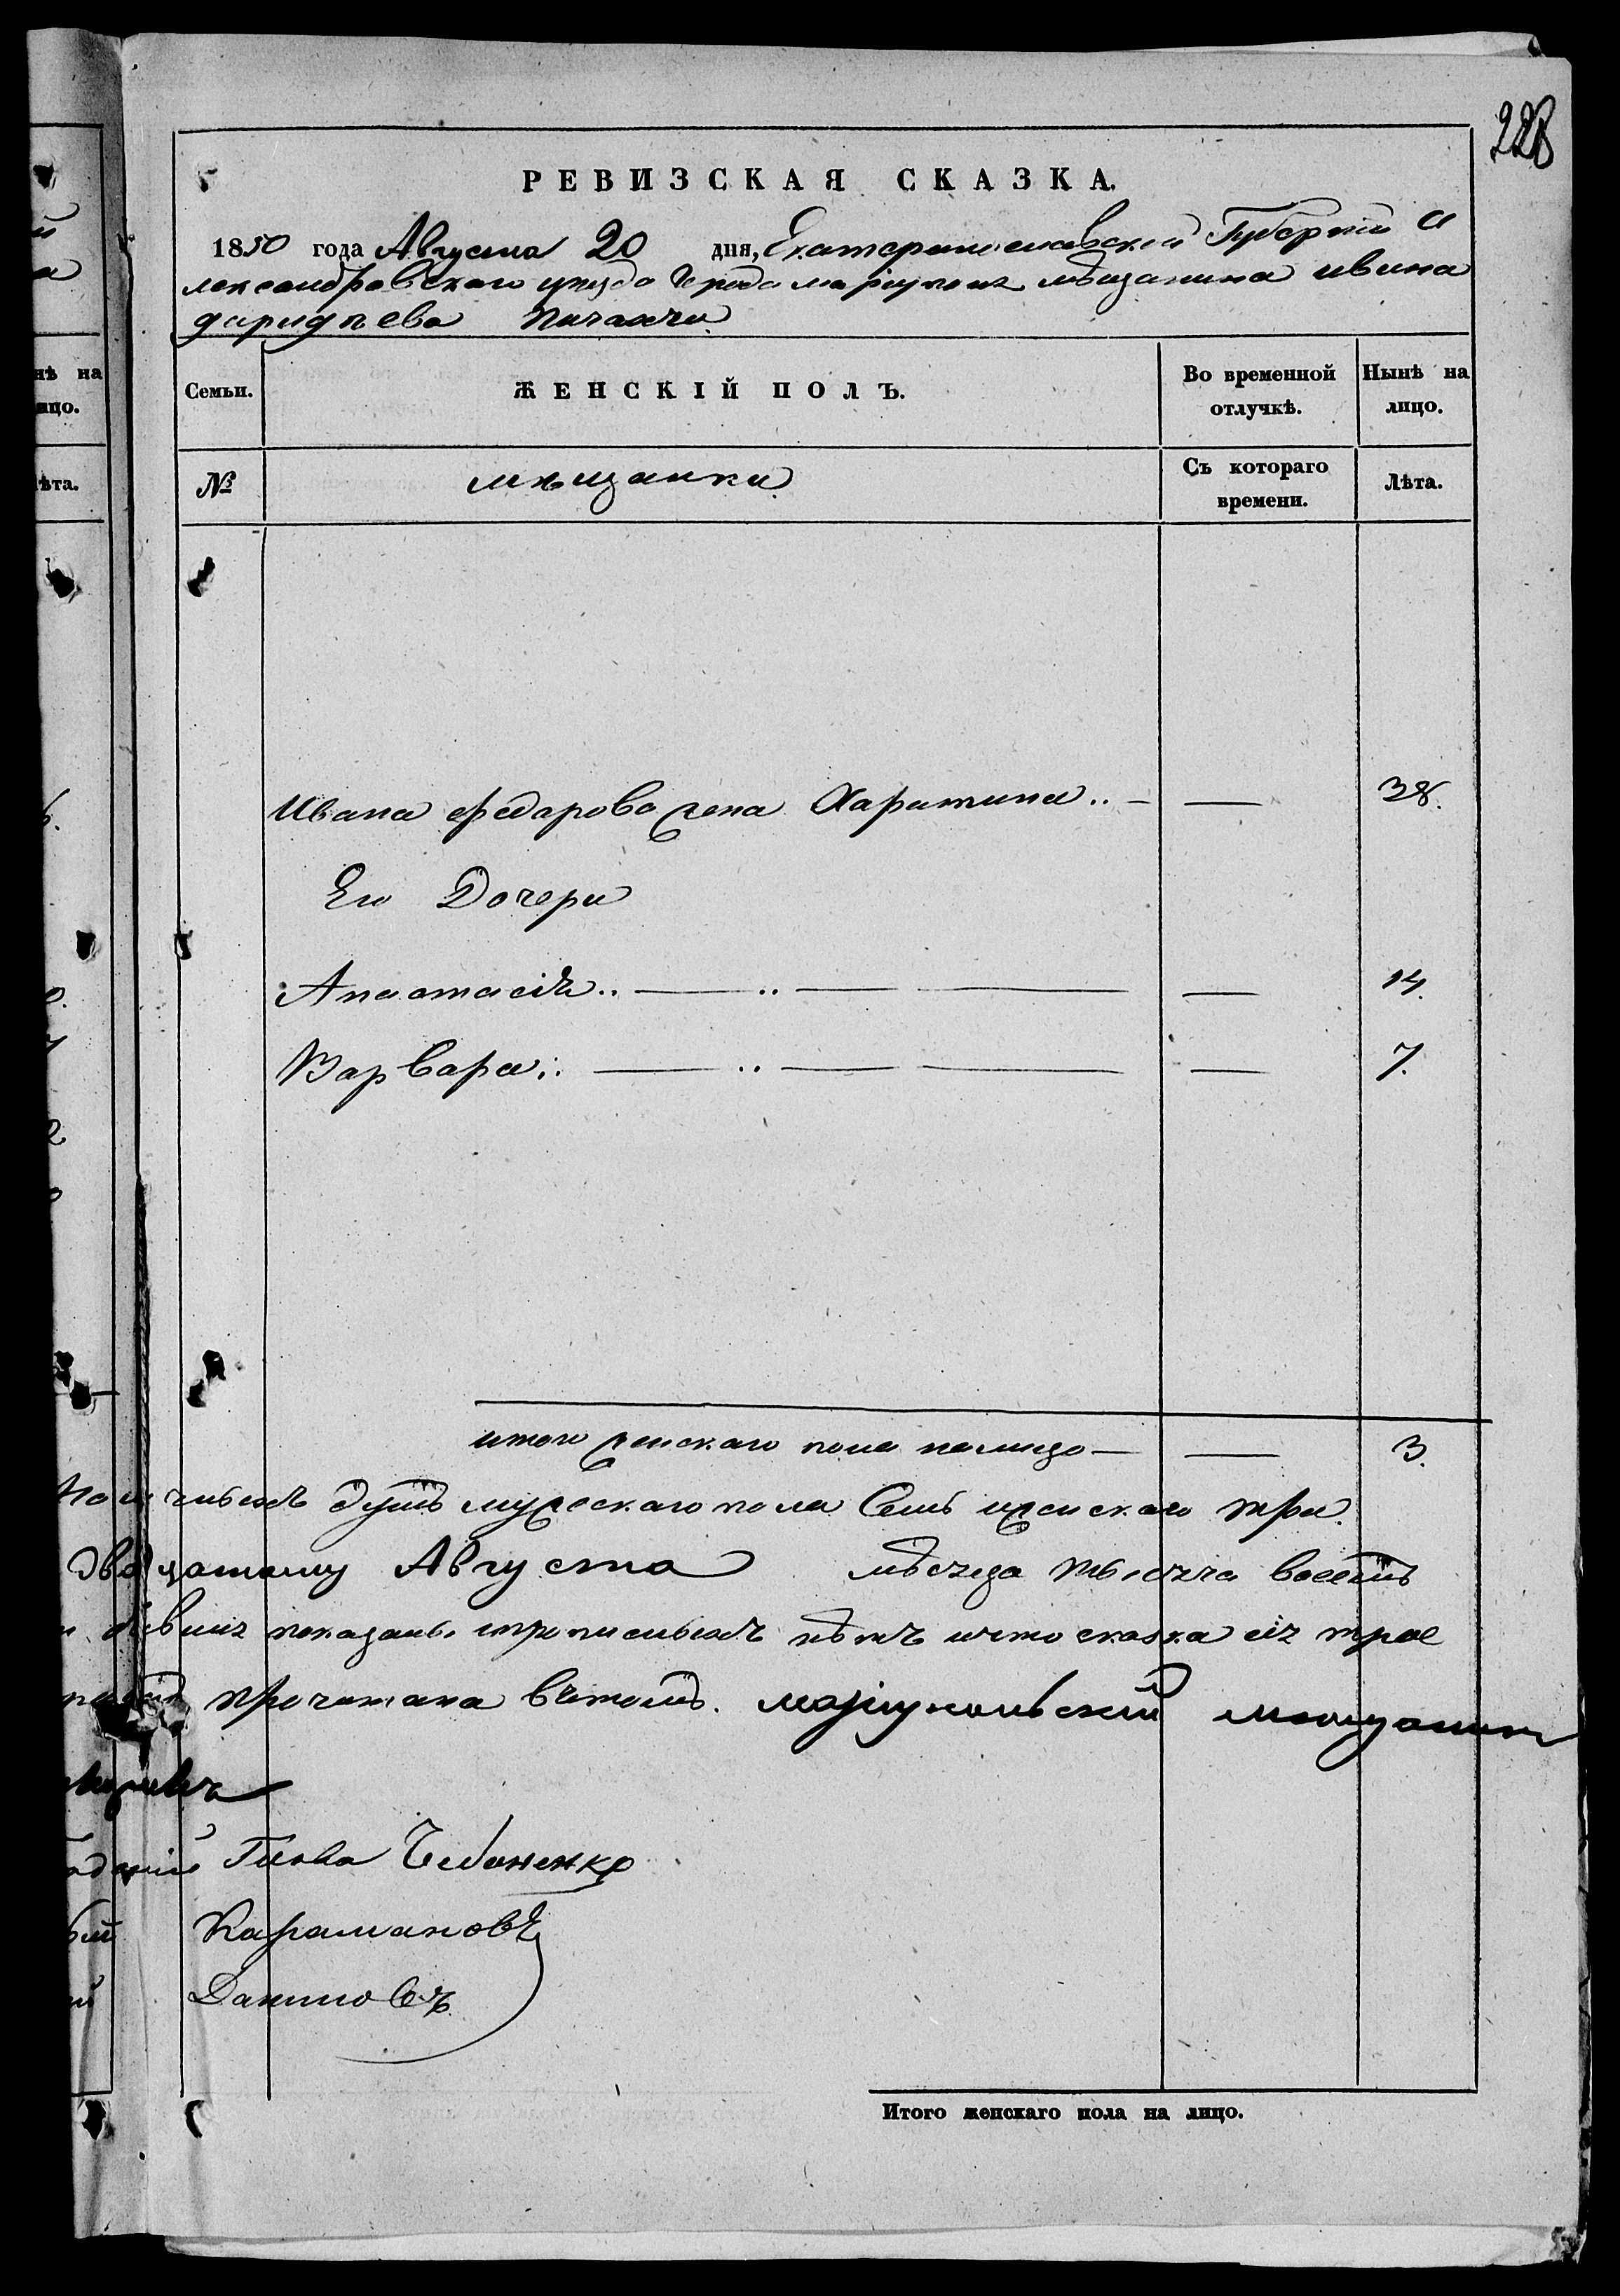 228
РЕВИЗСКАЯ СКАЗКА.
1850 года Августа 20 дня, Екатеринославской Губерніи а
лександровскаго уезда Города мариуполя мѣщанина ивана
Семьи. ЖЕНСКІЙ ПОЛЪ. Во временной отлучкѣ. Нынѣ на лицо.
№ мѣщанки Съ котораго времени. Лѣта.
Ивана федарова жена Харитина .. — — 38.
Его Дочери
Анастасія .. — .. — — — 14.
Варвара .. — .. — — — 7.
итого женскаго пола налицо — — 3.
душъ мужескаго пола Семь иженскаго три.
двадцатому Августа мѣсяца тысяча восемь
показаны ипрописныхъ нѣтъ ичто сказка сія
прочитана вътомъ. мариупольский мещанин
Глова Чебаненко
Карамановъ
Даниловъ
Итого женскаго пола на лицо.
нѣ на
ицо.
ѣта.